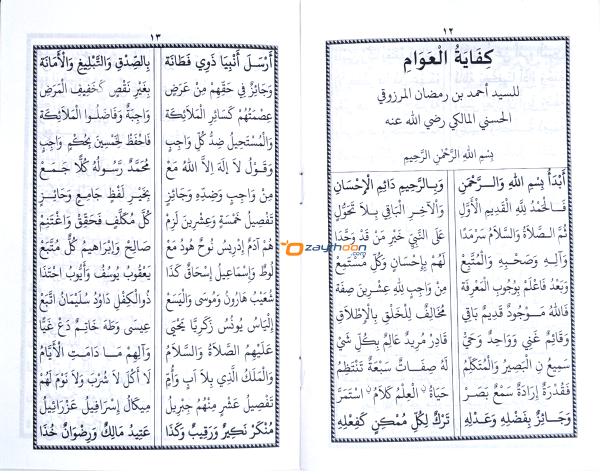 ١٢
كفاية العوام
للسيد أحمد بن رمضان المرزوقي
الحسني المالكي رضي الله عنه
بِسْمِ اللهِ الرَّحْمٰنِ الرَّحِيْمِ
أَبْدَأُ بِسْمِ اللهِ وَالرَّحْمٰنِ وَبِالرَّحِيْمِ دَائِمِ الْإِحْسَانِ
فَالْحَمْدُ لِلّٰهِ الْقَدِيْمِ الْأَوَّلِ وَالْآخِرِ الْبَاقِي بِلَا تَحَوُّلِ
ثُمَّ الصَّلَاةُ وَالسَّلَامُ سَرْمَدًا عَلَى النَّبِيِّ خَيْرِ مَنْ قَدْ وَحَّدَا
وَآلِهِ وَصَحْبِهِ وَالْمُتَّبِعْ لَهُمْ بِإِحْسَانٍ وَكُلِّ مُسْتَمِعْ
وَبَعْدُ فَاعْلَمْ بِوُجُوبِ الْمَعْرِفَهْ مِنْ وَاجِبٍ لِلّٰهِ عِشْرِيْنَ صِفَهْ
فَاللهُ مَوْجُودٌ قَدِيْمٌ بَاقِي مُخَالِفٌ لِلْخَلْقِ بِالْإِطْلَاقِ
وَقَائِمٌ غَنِي وَوَاحِدٌ وَحَيّْ قَادِرْ مُرِيْدٌ عَالِمٌ بِكُلِّ شَيْ
سَمِيْعٌ نِ الْبَصِيْرُ وَالْمُتَكَلِّمُ لَهُ صِفَاتٌ سَبْعَةٌ تَنْتَظِمُ
فَقُدْرَةٌ إِرَادَةٌ سَمْعٌ بَصَرْ حَيَاةُ نِ الْعِلْمُ كَلَامُ نِ اسْتَمَرّْ
وَجَائِزٌ بِفَضْلِهِ وَعَدْلِهِ تَرْكٌ لِكُلِّ مُمْكِنٍ كَفِعْلِهِ
١٣
أَرْسَلَ أَنْبِيَا ذَوِي فَطَانَهْ بِالصِّدْقِ وَالتَّبْلِيْغِ وَالْأَمَانَهْ
وَجَائِزٌ فِي حَقِّهِمْ مِنْ عَرَضِ بِغَيْرِ نَقْصٍ كَخَفِيْفِ الْمَرَضِ
عِصْمَتُهُمْ كَسَائِرِ الْمَلَائِكَهْ وَاجِبَةٌ وَفَاضَلُوا الْمَلَائِكَهْ
وَالْمُسْتَحِيْلُ ضِدُّ كُلِّ وَاجِبِ فَاحْفَظْ لِخَمْسِيْنَ بِحُكْمٍ وَاجِبِ
وَقَوْلُ لَا إِلٰهَ إِلَّا اللهُ مَعْ مُحَمَّدٌ رَسُولُهُ كُلًّا جَمَعْ
مِنْ وَاجِبٍ وَضِدِّهِ وَجَائِزِ بِخَيْرِ لَفْظٍ جَامِعٍ وَحَائِزِ
تَفْصِيْلُ خَمْسَةٍ وَعِشْرِيْنَ لَزِمْ كُلَّ مُكَلَّفٍ فَحَقِّقْ وَاغْتَنِمْ
هُمْ آدَمٌ إِدْرِيْسُ نُوْحٌ هُودُ مَعْ صَالِحْ وَإِبْرَاهِيْمُ كُلٌّ مُتَّبَعْ
لُوْطٌ وَإِسْمَاعِيْلُ إِسْحَاقُ كَذَا يَعْقُوبُ يُوسُفُ وَأَيُّوبُ احْتَذَا
شُعَيْبُ هَارُونُ وَمُوسَى وَالْيَسَعْ ذُوالْكِفْلِ دَاوُدُ سُلَيْمَانُ اتَّبَعْ
إِلْيَاسُ يُونُسُ زَكَرِيَّا يَحْيَى عِيسَى وَطٰهَ خَاتِمٌ دَعْ غَيَّا
عَلَيْهِمُ الصَّلَاةُ وَالسَّلَامُ وَآلِهِمْ مَا دَامَتِ الْأَيَّامُ
وَالْمَلَكُ الَّذِي بِلَا أَبٍ وَأُمّْ لَا أَكْلَ لَا شُرْبَ وَلَا نَوْمَ لَهُمْ
تَفْصِيْلُ عَشْرٍ مِنْهُمُ جِبْرِيْلُ مِيْكَالُ إِسْرَافِيْلُ عَزْرَائِيْلُ
مُنْكَرْ نَكِيْرٌ وَرَقِيْبٌ وَكَذَا عَتِيْدٌ مَالِكٌ وَرِضْوَانٌ خُذَا
zaythoon.com